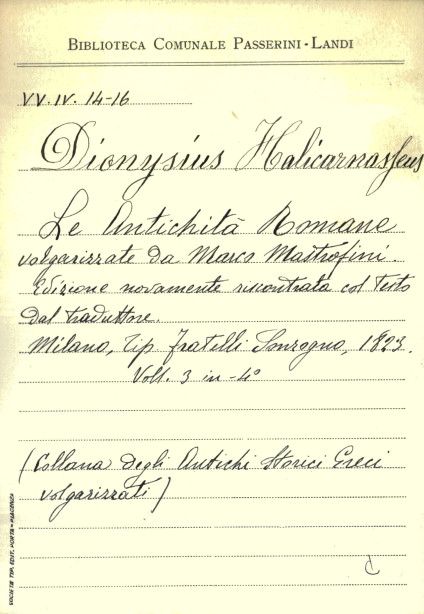 BIBLIOTECA COMUNALE PASSERINI-LANDI
VV.IV. 14-16
Dionysius Halicarnasseus
Le Antichità Romane
volgarizzate da Marco Mastrofini.
Edizione novamente riscontrata col testo
dal traduttore.
Milano, Tip. Fratelli Sonzogno, 1823.
Voll. 3 in-4°
(Collana degli Antichi Storici Greci
volgarizzati)
SOCIETÀ TIP. EDIT. PORTA - PIACENZA